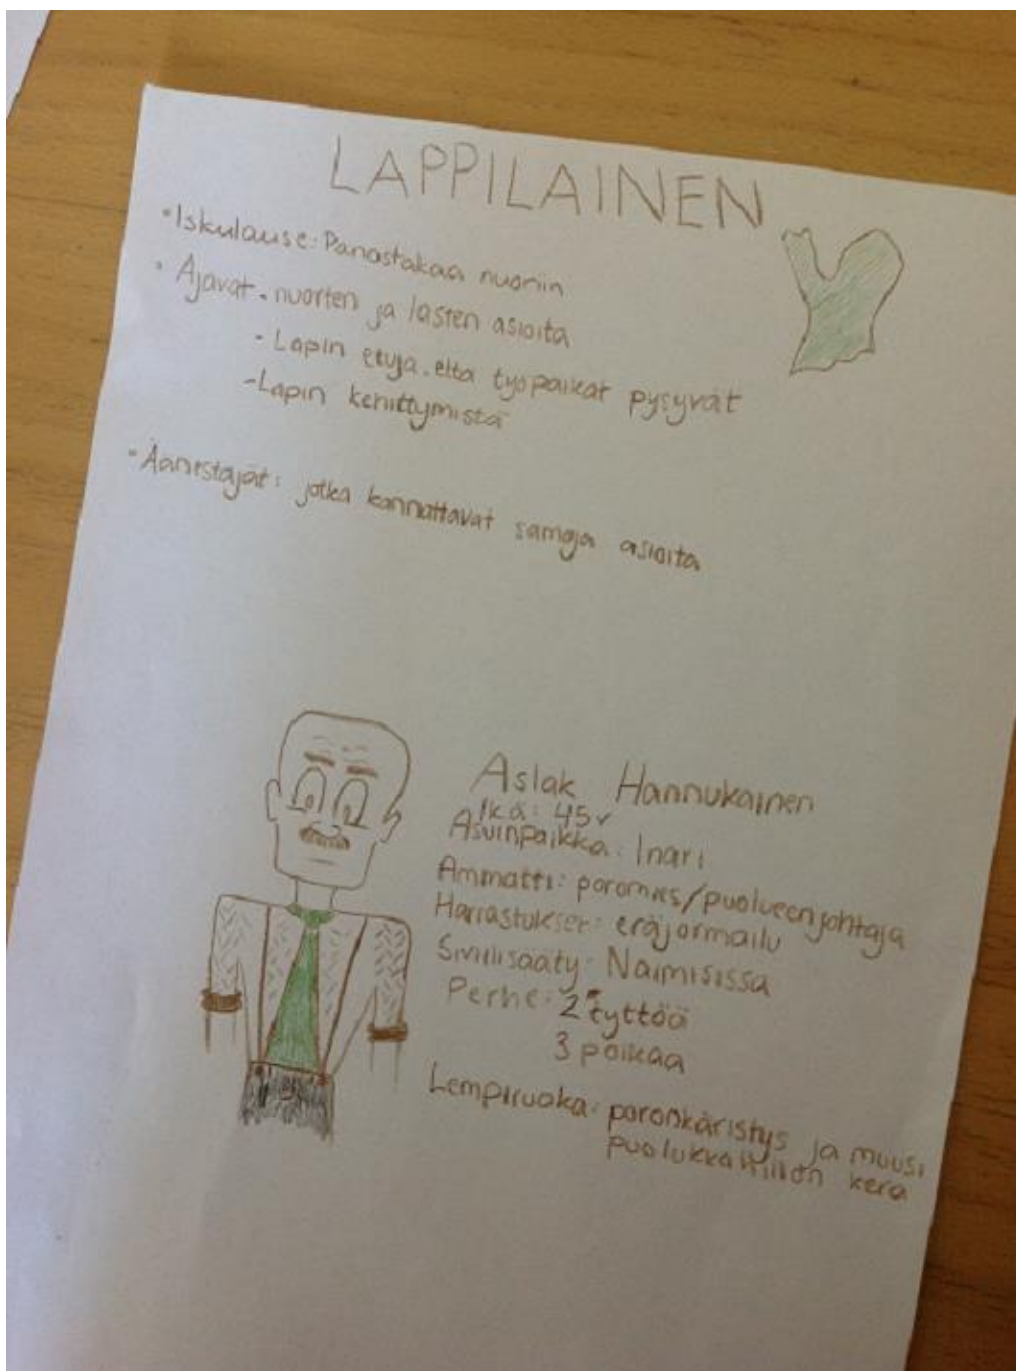 LAPPILAINEN
• Iskulause: Panostakaa nuoriin
• Ajavat - nuorten ja lasten asioita
- Lapin etuja, että työpaikat pysyvät
- Lapin kehittymistä
• Äänestäjät: jotka kannattavat samoja asioita
Aslak Hannukainen
Ikä: 45v
Asuinpaikka: Inari
Ammatti: poromies/puolueenjohtaja
Harrastukset: eräjormailu
Siviilisääty: Naimisissa
Perhe: 2 tyttöä
3 poikaa
Lempiruoka: poronkäristys ja muusi
puolukkahillon kera